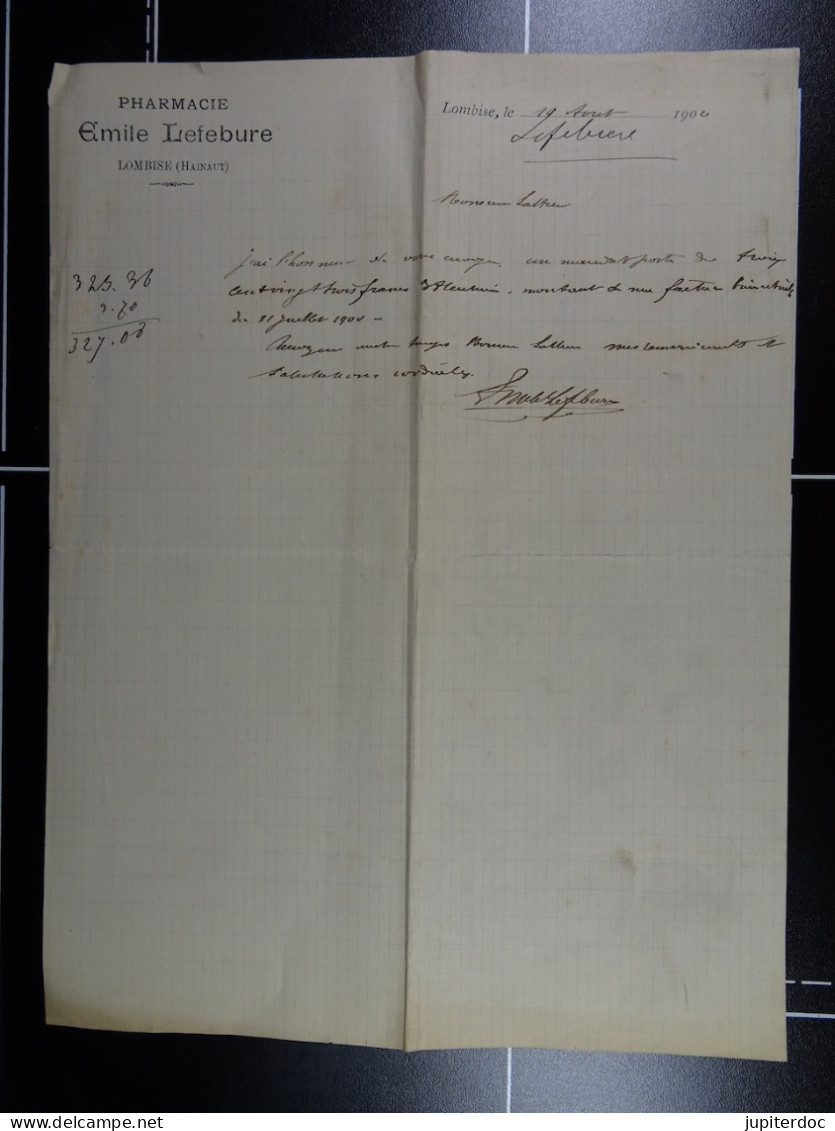 PHARMACIE
Emile Lefebure
LOMBISE (HAINAUT)
Lombise, le 19 Aout 1900
Lefebure
Monsieur
323.36
3.70
327.06
j'ai l'honneur de vous envoyer un mandat poste de trois
cent vingt trois francs 36 centimes, montant de ma facture
du 11 juillet 1900
Monsieur mes remerciements et
salutations cordiales
Emile Lefebure
© jupiterdoc
WWW.DELCAMPE.NET jupiterdoc